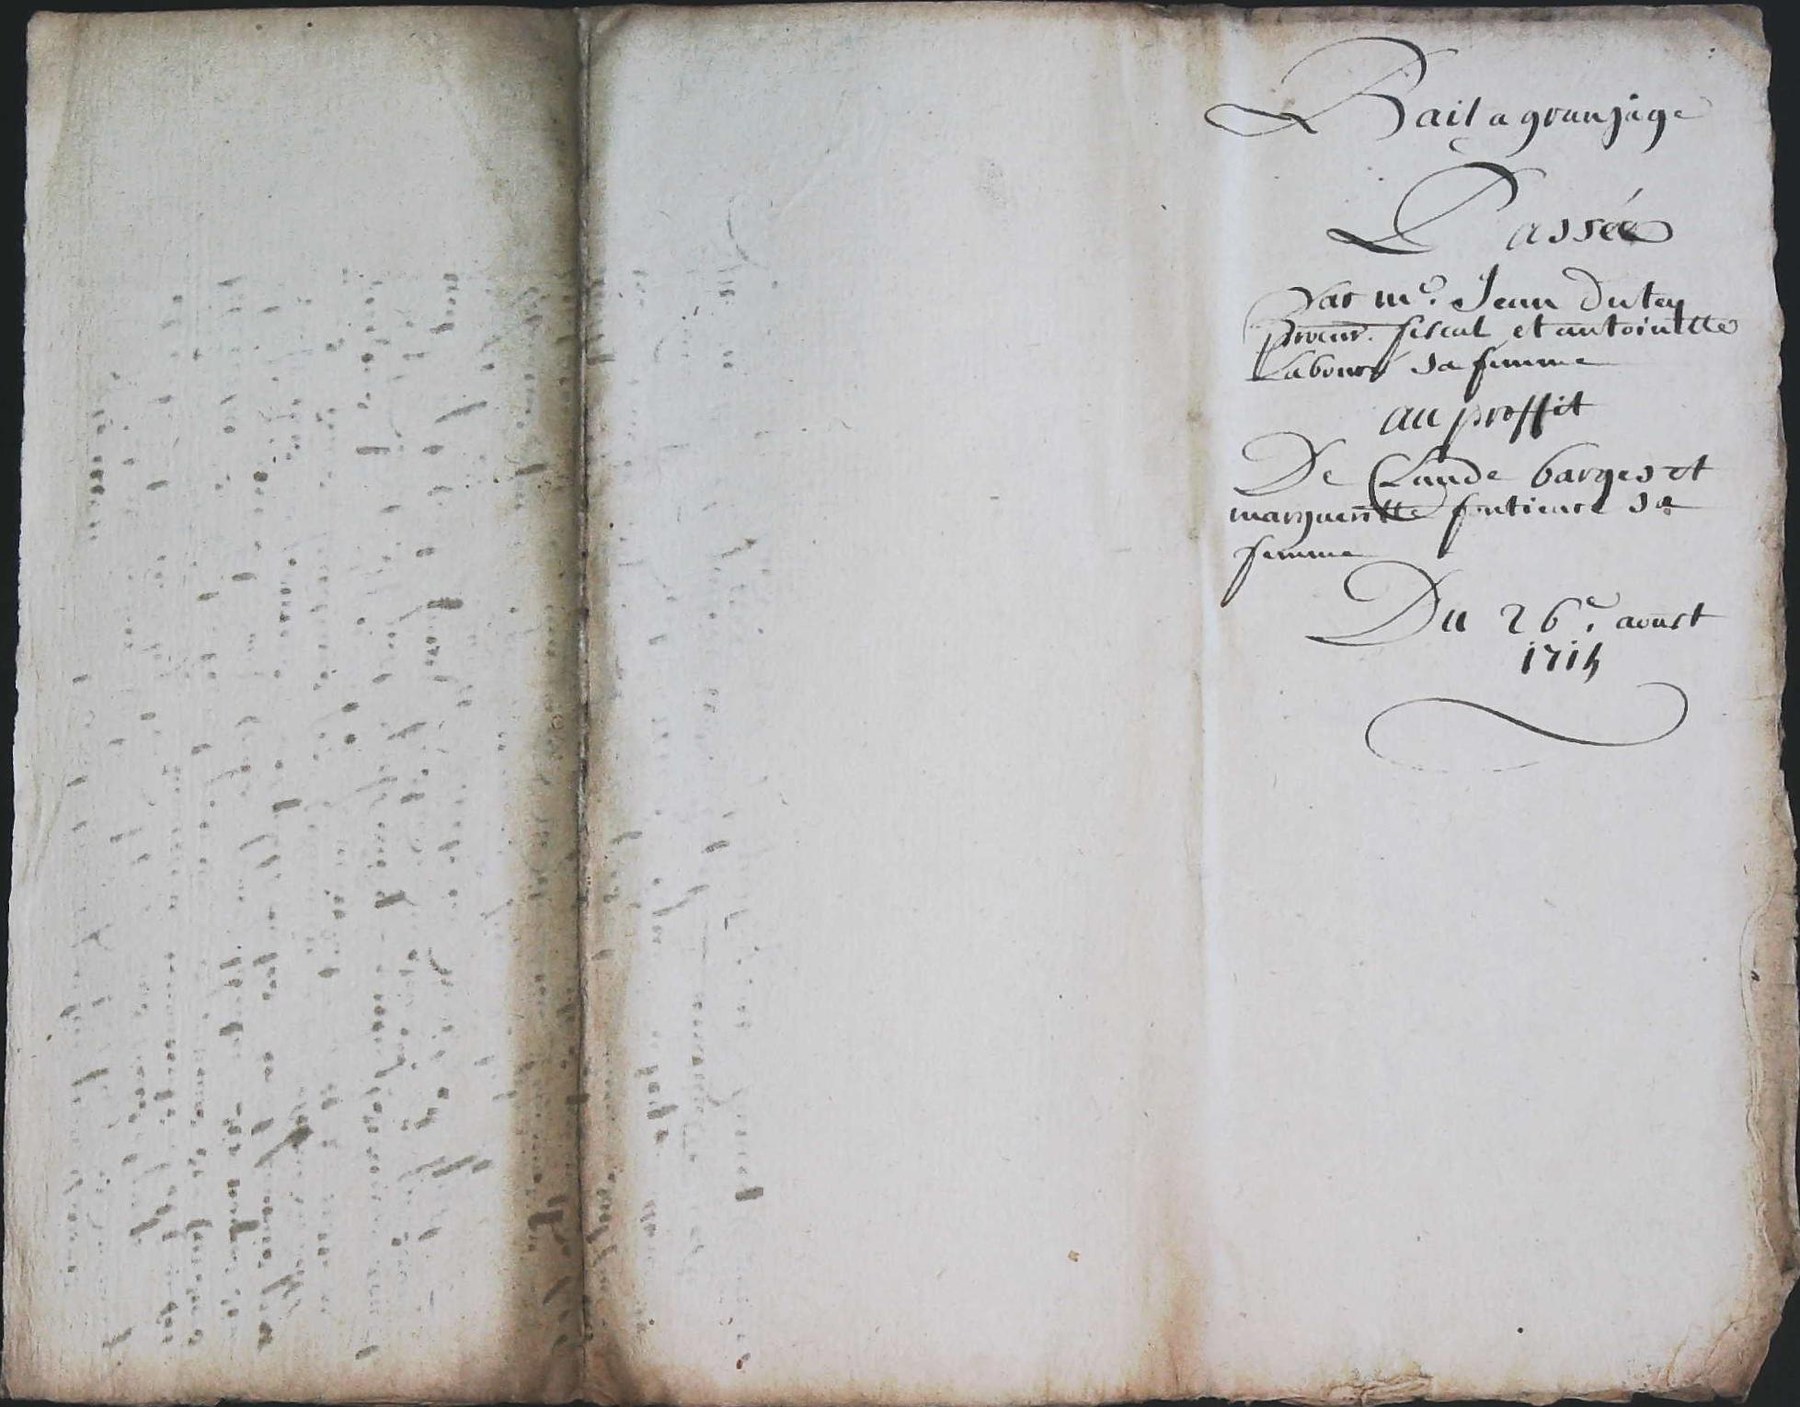 Bail a granjage
Passée
Par me. Jean Dutey
procur. fiscal et antoinette
Labouré sa femme
au proffit
De Claude barges et
margueritte sa
femme
Du 26e. aoust
1714